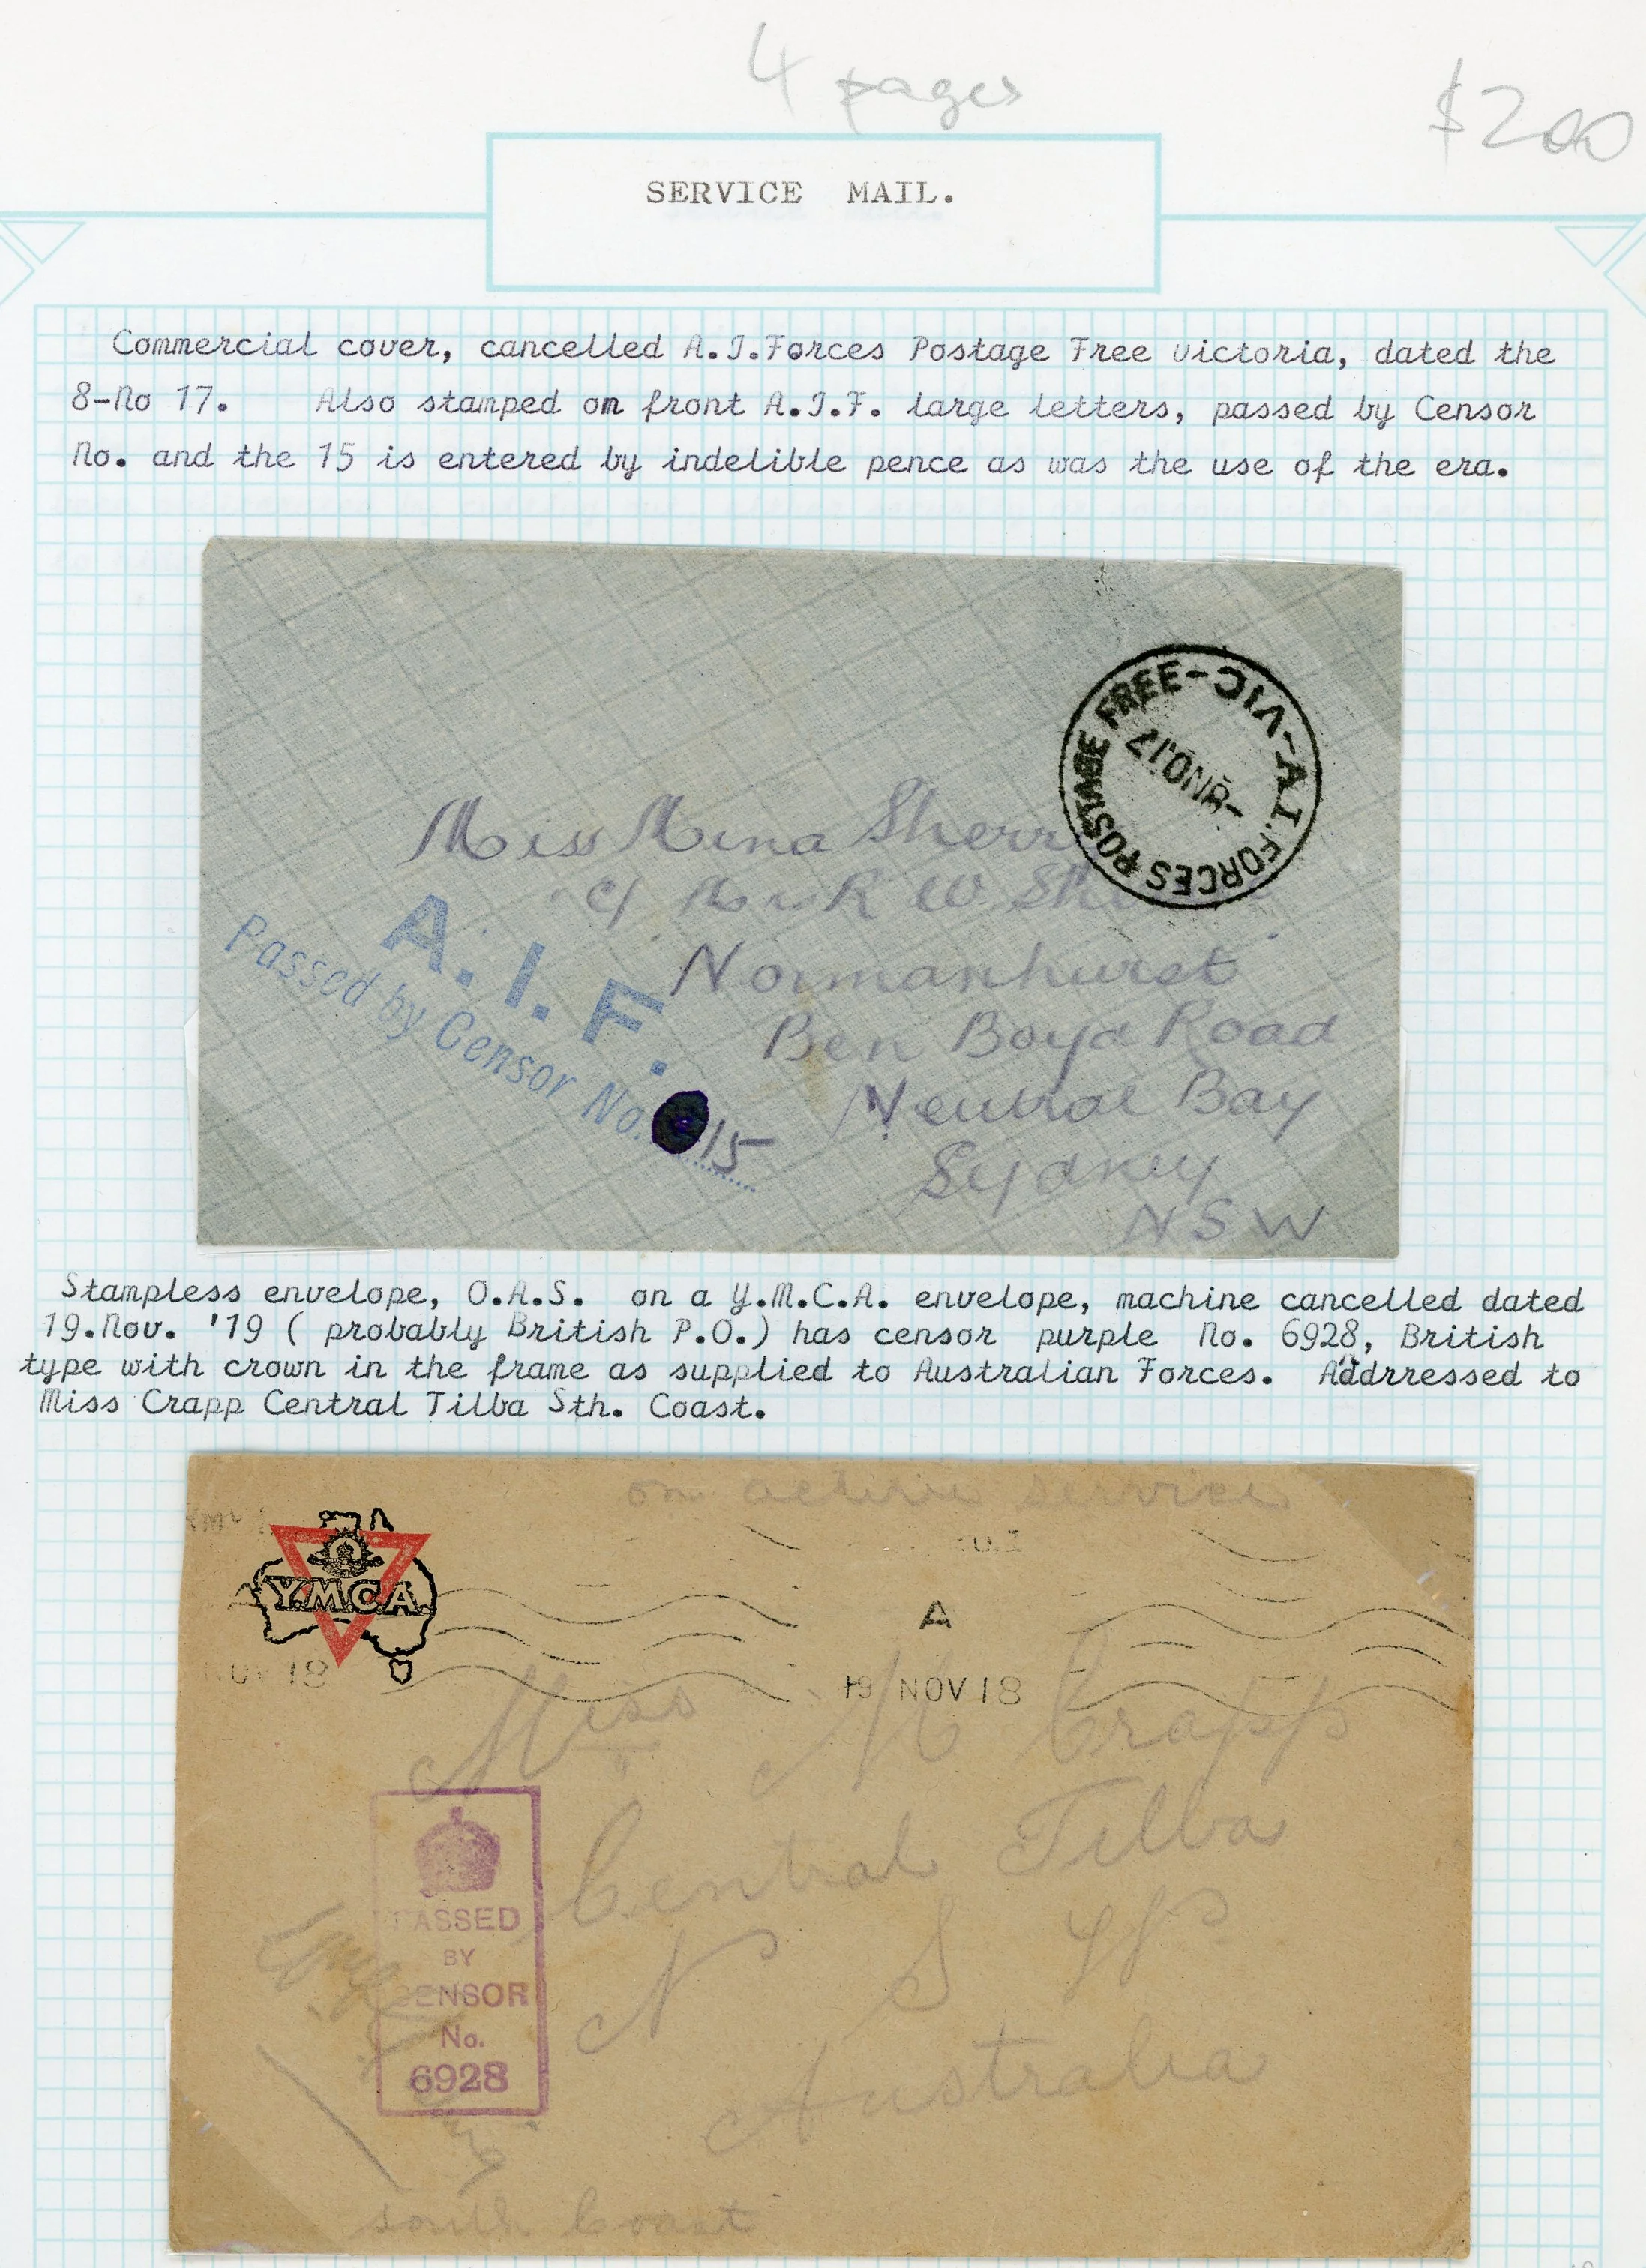 4 pages
$200
SERVICE MAIL.
Commercial cover, cancelled A.I.Forces Postage Free Victoria, dated the
8-No 17. Also stamped on front A.I.F. large letters, passed by Censor
No. and the 15 is entered by indelible pence as was the use of the era.
A.I. FORCES POSTAGE FREE-VIC-
-8NO17
Miss Mina Sherr
c/ R W. Sh
Normanhurst
Ben Boyd Road
Neutral Bay
Sydney
NSW
A. I. F.
Passed by Censor No. 15
Stampless envelope, O.A.S. on a Y.M.C.A. envelope, machine cancelled dated
19.Nov. '19 ( probably British P.O.) has censor purple No. 6928, British
type with crown in the frame as supplied to Australian Forces. Addrressed to
Miss Crapp Central Tilba Sth. Coast.
on active service
Y.M.C.A.
A
NOV 18
19 NOV 18
Miss M Crapp
Central Tilba
N S W
Australia
PASSED
BY
CENSOR
No.
6928
South Coast